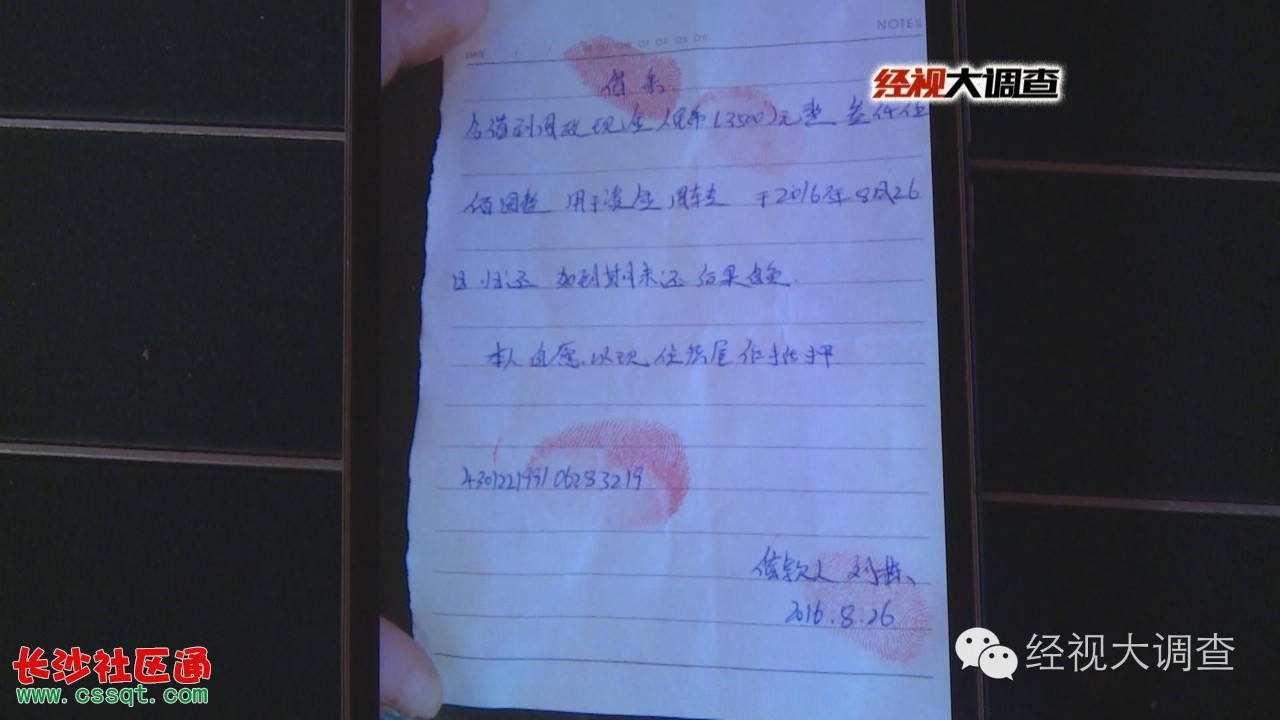 NOTES
DATE
经视大调查
借条
今借到周政现金人民币(3500)元整 叁仟伍
佰圆整 用于资金周转 于2016年8月26
日归还 如到期未还 后果自负.
本人自愿以现住房屋作抵押
借款人 刘
2016.8.26
经视大调查
长沙社区通
www.cssqt.com